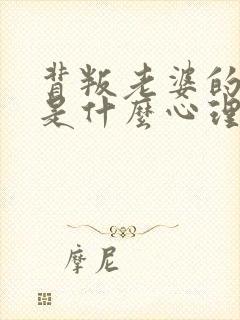 背叛老婆的
是什麽心理
摩尼